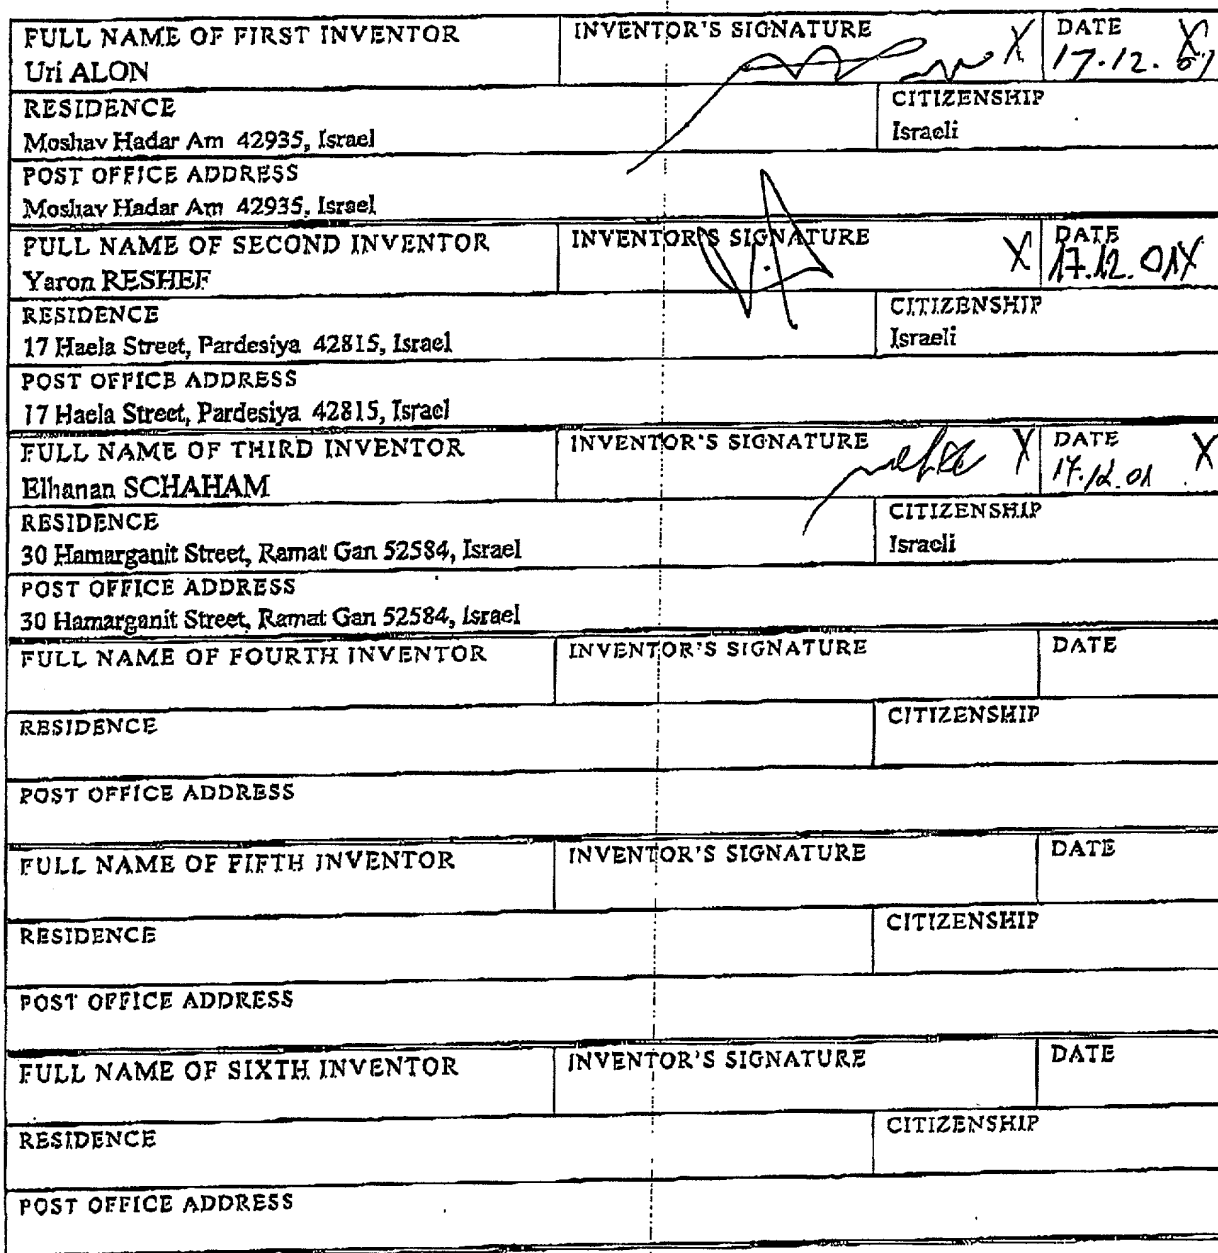 FULL NAME OF FIRST INVENTOR INVENTOR'S SIGNATURE DATE
Uri ALON X 17.12. 01 X
RESIDENCE CITIZENSHIP
Moshav Hadar Am 42935, Israel Israeli
POST OFFICE ADDRESS
Moshav Hadar Am 42935, Israel
FULL NAME OF SECOND INVENTOR INVENTOR'S SIGNATURE DATE
Yaron RESHEF X 17.12.01 X
RESIDENCE CITIZENSHIP
17 Haela Street, Pardesiya 42815, Israel Israeli
POST OFFICE ADDRESS
17 Haela Street, Pardesiya 42815, Israel
FULL NAME OF THIRD INVENTOR INVENTOR'S SIGNATURE DATE
Elhanan SCHAHAM X 17.12.01 X
RESIDENCE CITIZENSHIP
30 Hamarganit Street, Ramat Gan 52584, Israel Israeli
POST OFFICE ADDRESS
30 Hamarganit Street, Ramat Gan 52584, Israel
FULL NAME OF FOURTH INVENTOR INVENTOR'S SIGNATURE DATE
RESIDENCE CITIZENSHIP
POST OFFICE ADDRESS
FULL NAME OF FIFTH INVENTOR INVENTOR'S SIGNATURE DATE
RESIDENCE CITIZENSHIP
POST OFFICE ADDRESS
FULL NAME OF SIXTH INVENTOR INVENTOR'S SIGNATURE DATE
RESIDENCE CITIZENSHIP
POST OFFICE ADDRESS